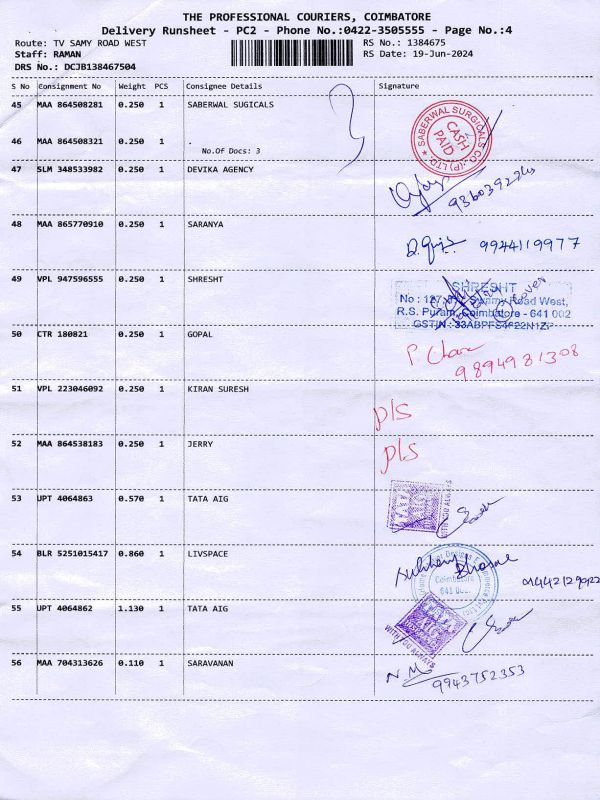 THE PROFESSIONAL COURIERS, COIMBATORE
Delivery Runsheet - PC2 - Phone No.:0422-3505555 - Page No.:4
Route: TV SAMY ROAD WEST RS No.: 1384675
Staff: RAMAN RS Date: 19-Jun-2024
DRS No.: DCJB138467504
S No Consignment No Weight PCS Consignee Details Signature
45 MAA 864508281 0.250 1 SABERWAL SUGICALS
SABERWAL SURGICALS CO. (P) LTD.
CASH PAID
3
46 MAA 864508321 0.250 1 .
No.Of Docs: 3
47 SLM 348533982 0.250 1 DEVIKA AGENCY
48 MAA 865770910 0.250 1 SARANYA
9944119977
49 VPL 947596555 0.250 1 SHRESHT
SHRESHT
Road West,
R.S. Puram, Coimbatore - 641 002
50 CTR 180821 0.250 1 GOPAL
9894981308
51 VPL 223046092 0.250 1 KIRAN SURESH
P/S
52 MAA 864538183 0.250 1 JERRY
P/S
53 UPT 4064863 0.570 1 TATA AIG
WITH YOU ALWAYS
54 BLR 5251015417 0.860 1 LIVSPACE
Coimbatore
55 UPT 4064862 1.130 1 TATA AIG
WITH YOU ALWAYS
56 MAA 704313626 0.110 1 SARAVANAN
9943752353